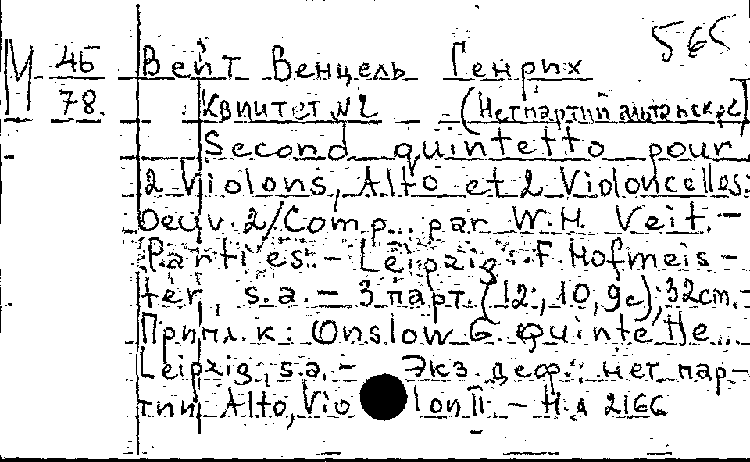 565
М 46/78 Вейт Венцель Генрих
Квинтет №2 (Нет партий альта и скр. 2)
Second quintetto pour
2 Violons, Alto et 2 Violoncelles.
Oeuv. 2/Comp... par W.H. Veit.-
Parties.- Leipzig: F. Hofmeis-
ter, s.a.- 3 парт. (12, 10, 9с), 32cm.-
Припл. к: Onslow G. Quintette...
Leipzig, s.a.- Экз. деф.: нет пар-
тии Alto, Violon II.-